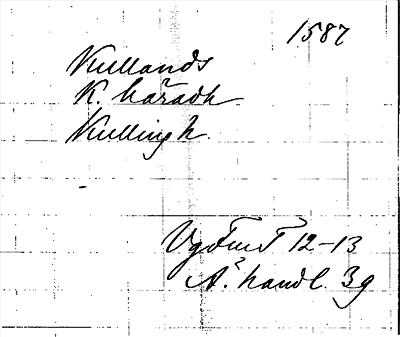 1587
Kullands
K. häradh.
Kullingh.
VgFmT 12-13
Å. handl. 39